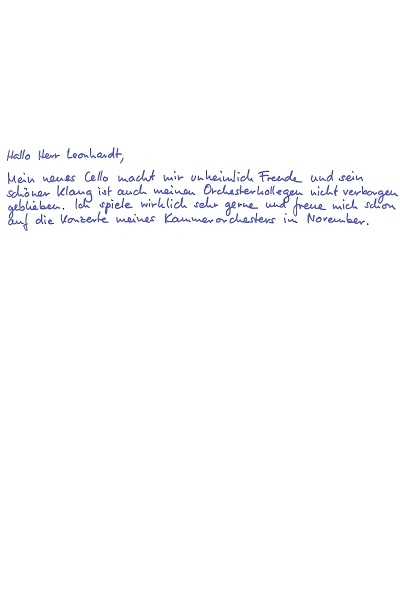 Hallo Herr Leonhardt,
Mein neues Cello macht mir unheimlich Freude und sein
schöner Klang ist auch meinen Orchesterkollegen nicht verborgen
geblieben. Ich spiele wirklich sehr gerne und freue mich schon
auf die Konzerte meines Kammerorchesters im November.